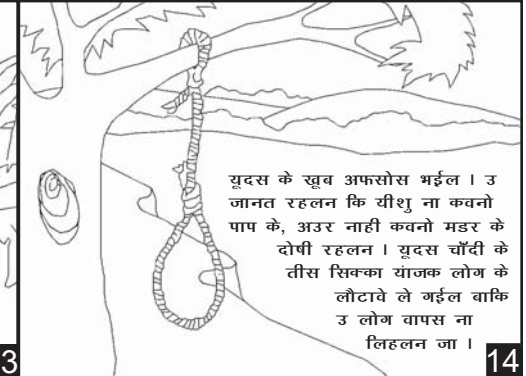 यूदस के खूब अफसोस भईल । उ
जानत रहलन कि यीशु ना कवनो
पाप के, अउर नाही कवनो मडर के
दोषी रहलन । यूदस चाँदी के
तीस सिक्का यांजक लोग के
लौटावे ले गईल बाकि
उ लोग वापस ना
लिहलन जा ।
3
14